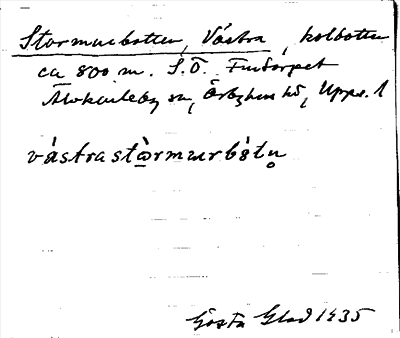 Stormurbotten, Västra, kolbotten
ca 800 m. S.Ö. Fintorpet
Älvkarleby sn, Örbyhus hd, Upps. l
västrastòrmurbòtn̥
Gösta Glad 1935